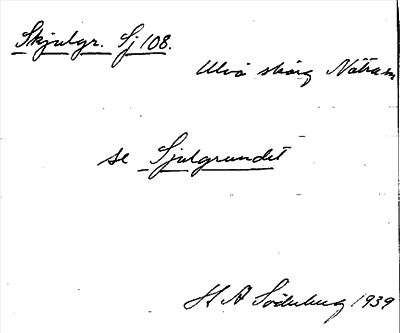 Skjulgr. Sj 108.
Ulvö skärg Nätram
se Sjulgrundet
H A Söderberg 1939